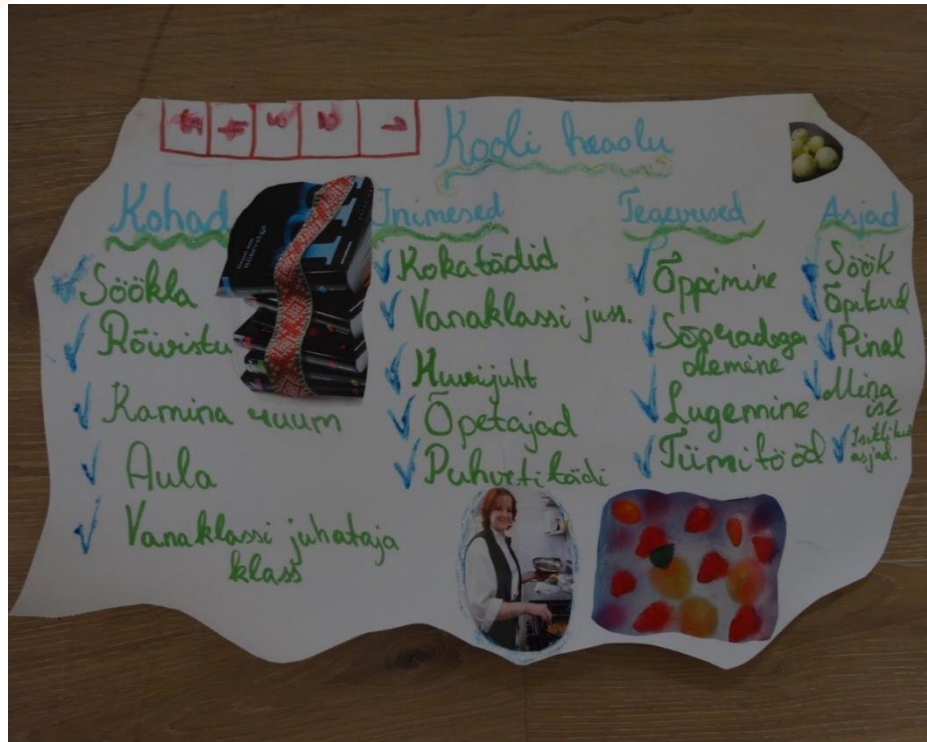 5 4 3 2 1
Kooli heaolu
Kohad
Söökla
Rõivistu
Kamina ruum
Aula
Vanaklassi juhataja
klass
Inimesed
Kokatädid
Vanaklassi juss.
Huvijuht
Õpetajad
Puhvetitädi
Tegevused
Õppimine
Sõpradega
olemine
Lugemine
Tiimitööd
Asjad
Söök
Õpikud
Pinal
Mina
ise
Isiklikud
asjad.